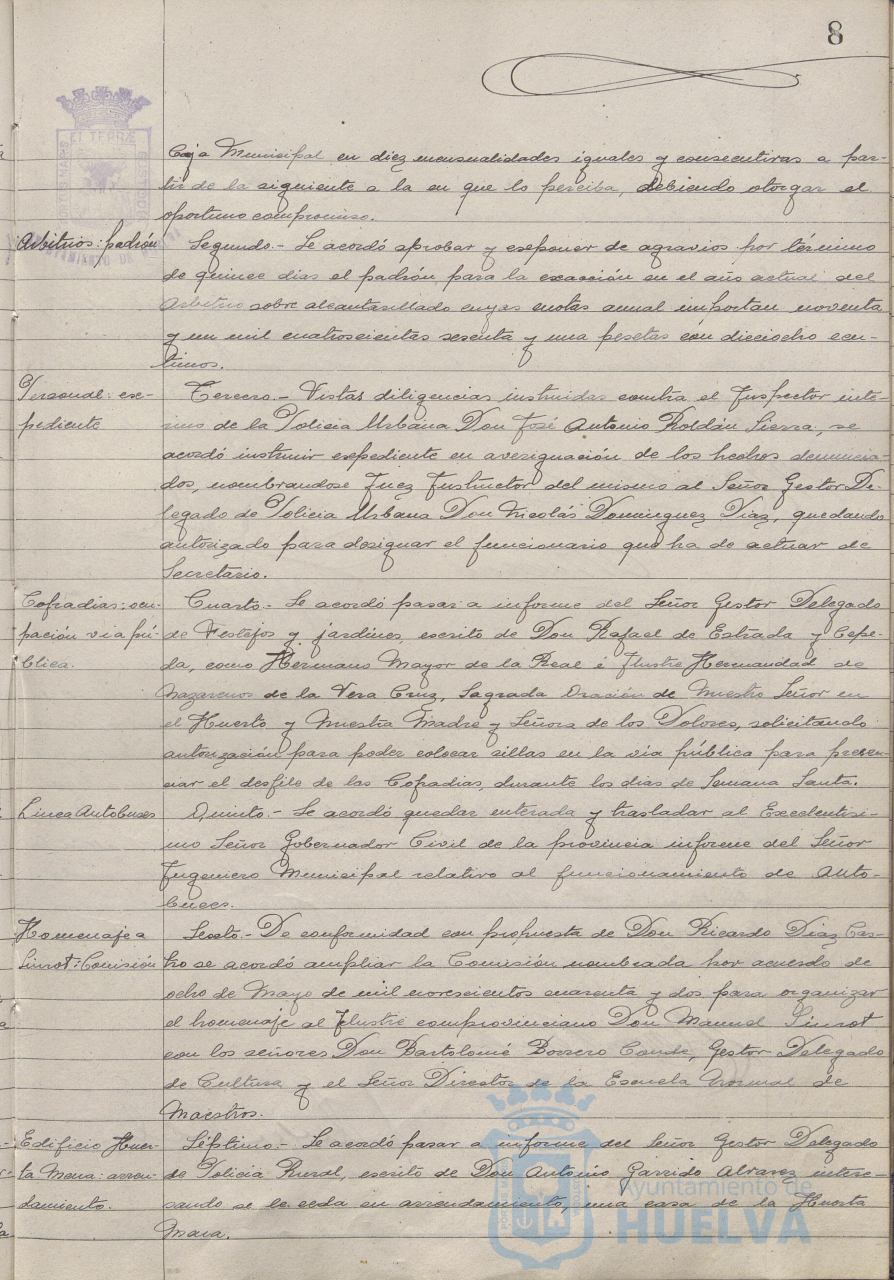 8
Caja Municipal en diez mensualidades iguales y consecutivas a par-
tir de la siguiente a la en que lo perciba, debiendo otorgar el
oportuno compromiso.
Arbitrios: padrón
Segundo.- Se acordó aprobar y exponer de agravios por término
de quince dias el padrón para la exacción en el año actual del
Arbitrio sobre alcantarillado cuyas cuotas anual importan noventa
y un mil cuatrocientas sesenta y una pesetas con dieciocho cen-
timos.
Personal: ex-
pediente
Tercero.- Vistas diligencias instruidas contra el Inspector inte-
rino de la Policia Urbana Don José Antonio Roldán Sierra, se
acordó instruir expediente en averiguación de los hechos denuncia-
dos, nombrandose Juez Instructor del mismo al Señor Gestor De-
legado de Policia Urbana Don Nicolás Dominguez Diaz, quedando
autorizado para designar el funcionario que ha de actuar de
Secretario.
Cofradias: ocu-
pación via pú-
blica.
Cuarto.- Se acordó pasar a informe del Señor Gestor Delegado
de Festejos y jardines, escrito de Don Rafael de Estrada y Cepe-
da, como Hermano Mayor de la Real é Ilustre Hermandad de
Nazarenos de la Vera Cruz, Sagrada Oración de Nuestro Señor en
el Huerto y Nuestra Madre y Señora de los Dolores, solicitando
autorización para poder colocar sillas en la via pública para presen-
ciar el desfile de las Cofradias, durante los dias de Semana Santa.
Linea Autobuses
Quinto.- Se acordó quedar enterada y trasladar al Excelentisi-
mo Señor Gobernador Civil de la provincia informe del Señor
Ingeniero Municipal relativo al funcionamiento de Auto-
buses.
Homenaje a
Siurot: Comisión
Sexto.- De conformidad con propuesta de Don Ricardo Diaz Cas-
tro se acordó ampliar la Comisión nombrada por acuerdo de
ocho de Mayo de mil novescientos cuarenta y dos para organizar
el homenaje al Ilustre comprovinciano Don Manuel Siurot
con los señores Don Bartolomé Borrero Conde, Gestor Delegado
de Cultura y el Señor Director de la Escuela Normal de
Maestros.
Edificio Huer-
ta Mena: arren-
damiento.
Séptimo.- Se acordó pasar a informe del Señor Gestor Delegado
de Policia Rural, escrito de Don Antonio Garrido Alvarez intere-
sando se le ceda en arrendamiento, una casa de la Huerta
Mena.
Ayuntamiento de
HUELVA